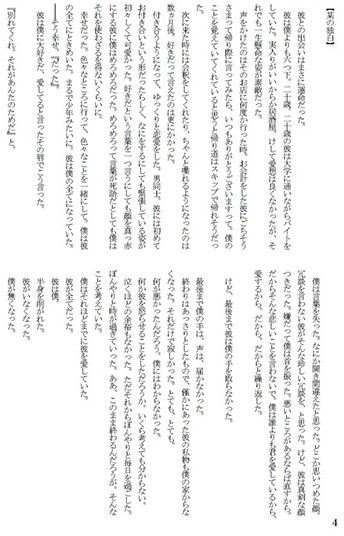 【某の独白】
彼との出会いはまさに運命だった。
彼は僕よりも六つ下、二十歳。二十歳の彼は大学に通いながらバイトを
していた。実入りがいいからか居酒屋。けして愛想は良くなかったが、そ
れでも一生懸命な姿が素敵だった。
声をかけたのはそのお店に何度か行った時。お会計をした彼にごちそう
さまって帰り際に言ってみたら、いつもありがとうございますって。僕の
ことを覚えていてくれていると思うと帰り道はスキップで帰れそうだっ
次に来た時には会釈をしてくれたり、ちゃんと喋れるようになったのは
数ヵ月後。好きだって言えたのは更にむかった。
付き合うようになって、ゆっくりと恋愛をした。男同士。彼には初めて
お付き合いという形だったらしく、なにをするにしても緊張している姿が
初々しくて可愛かった。好きだという言葉を一つ言うにしても顔を真っ赤
にする彼に僕はめろめろだった。めろめろって言葉が死語だとしても僕は
それを使わざるを得ないくらいに。
幸せだった。色々なところに行って、色々なことを一緒にして。僕は彼
の全てにときめいた。まるで少年みたいに。彼は僕の全てになっていた。
――そう幸せ、『だった』。
彼は僕に大好きだ、愛してると言ったその唇でこう言った。
『別れてくれ。それがあんたのためだ』と。
僕は言葉を失った。なにか聞き間違えたと思った。どこか思いつめた顔。
冗談を言わない彼がそんな珍しい冗談を、と思った。けど、彼は真剣な顔
つきだった。嫌だって僕は首を振った。悪いところがあるならば直すから。
だからそんな悲しいことを言わないで。僕は誰よりも君を愛しているから、
愛するから。だから、だからと繰り返した。
けど、最後まで彼は僕の手を取らなかった。
最後まで僕の手は、声は、届かなかった。
終わりはあっさりとしたもので、僅かにあった彼の私物も僕の家からな
くなった。それだけで寂しかった。とても、とても。
何が悪かったんだろう。僕にはわからなかった。
何か彼を怒らせることをしただろうか。いくら考えても分からない。
泣くほどの余裕もなかった。ただそれからぼんやりと毎日を過ごした。
ぼんやりと時が過ぎていった。ああ、このまま終わるんだろうか、そんな
ことを考えていた。
僕はそれほどまでに彼を愛していた。
彼が全てだった。
彼は僕。
半身を削がれた。
彼がいなくなった。
僕が無くなった。
4